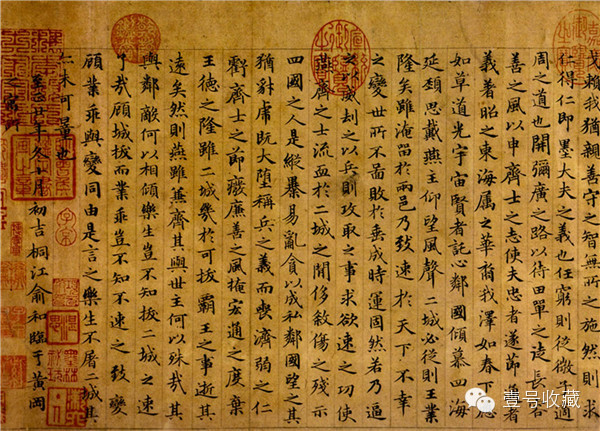 賴我猶親善守之智無所之施然則求
仁得仁即墨大夫之義也任窮則從微子適
周之道也開彌廣之路以待田單之徒長容
善之風以申齊士之志使夫忠者遂節通者
義著昭之東海屬之華裔我澤如春下應
如草道光宇宙賢者託心鄰國傾慕四海
延頸思戴燕主仰望風聲二城必從則王業
隆矣雖淹留於兩邑乃致速於天下不幸
之變世所不圖敗於垂成時運固然若乃逼
之以威刧之以兵則攻取之事求欲速之功使
燕齊之士流血於二城之間侈殺傷之殘示
四國之人是縱暴易亂貪以成私鄰國望之其
猶豺虎既大墮稱兵之義而喪濟弱之仁
虧齊士之節廢廉善之風掩宏通之度棄
王德之隆雖二城幾於可拔霸王之事逝其
遠矣然則燕雖兼齊其與世主何以殊哉其
與鄰敵何以相傾樂生豈不知拔二城之速
了哉顧城拔而業乖豈不知不速之致變
顧業乖與變同由是言之樂生不屠二城其
亡未可量也
年冬十月初吉桐江俞和臨于黄岡
壹号收藏